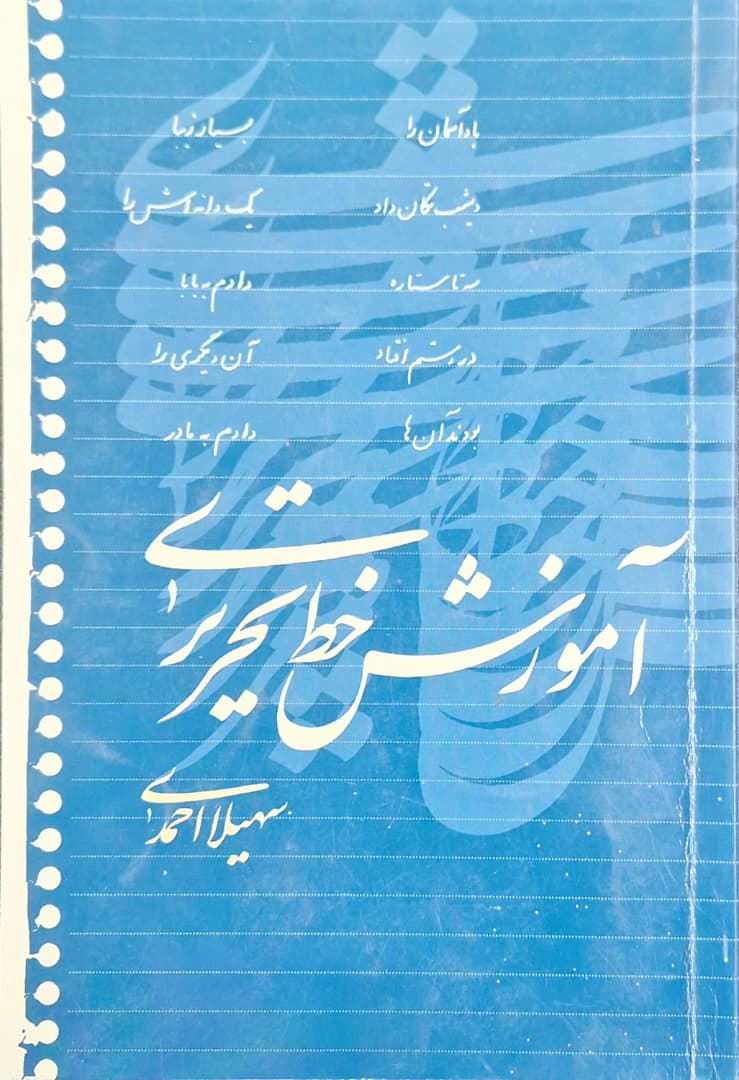 باد آسمان را
دیشب تکان داد
سه تا ستاره
در دستم افتاد
بودند آن ها
بسیار زیبا
یک دانه اش را
دادم به بابا
آن دیگری را
دادم به مادر
آموزش خط تحریری
سهیلا احمدی